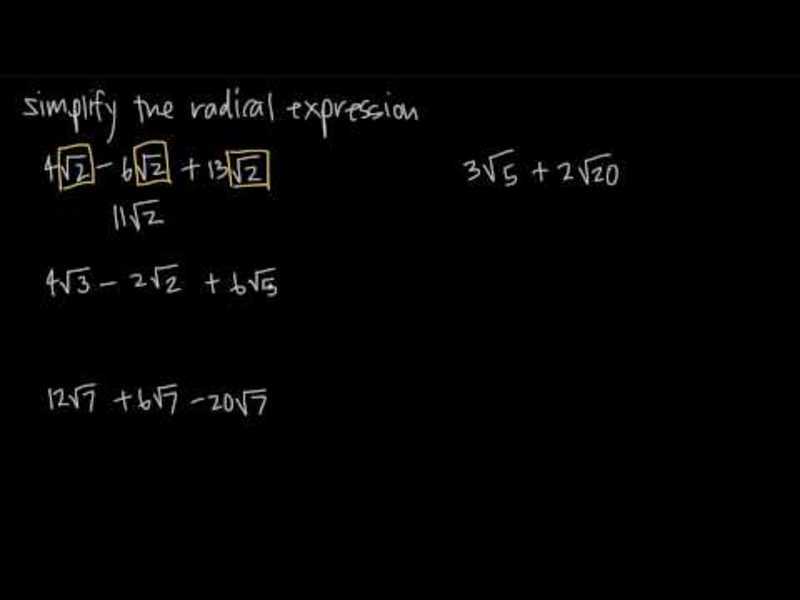 simplify the radical expression
4√2 - 6√2 + 13√2
11√2
4√3 - 2√2 + 6√5
12√7 + 6√7 - 20√7
3√5 + 2√20